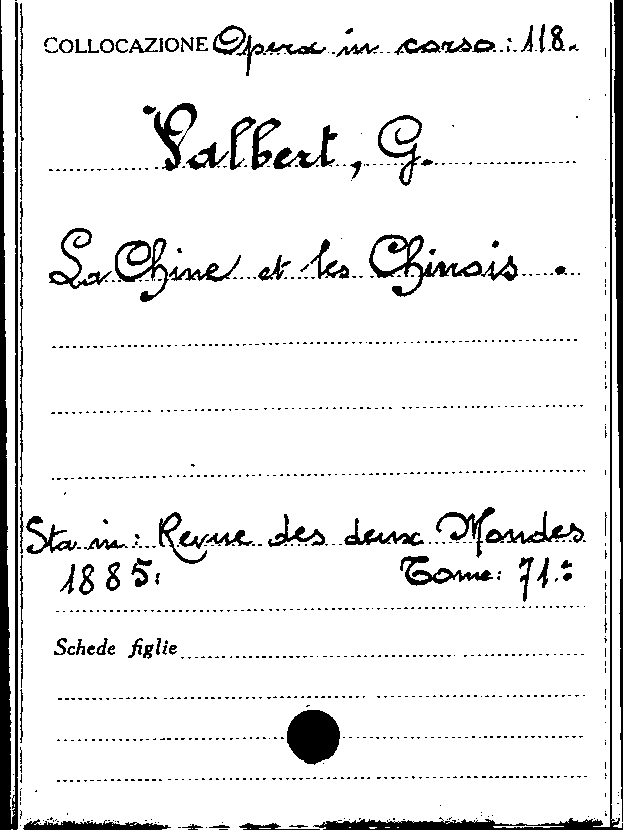 COLLOCAZIONE Opera in corso: 118.
Valbert, G.
La Chine et les Chinois.
Sta in: Revue des deux Mondes
1885: Tome: 71.º
Schede figlie